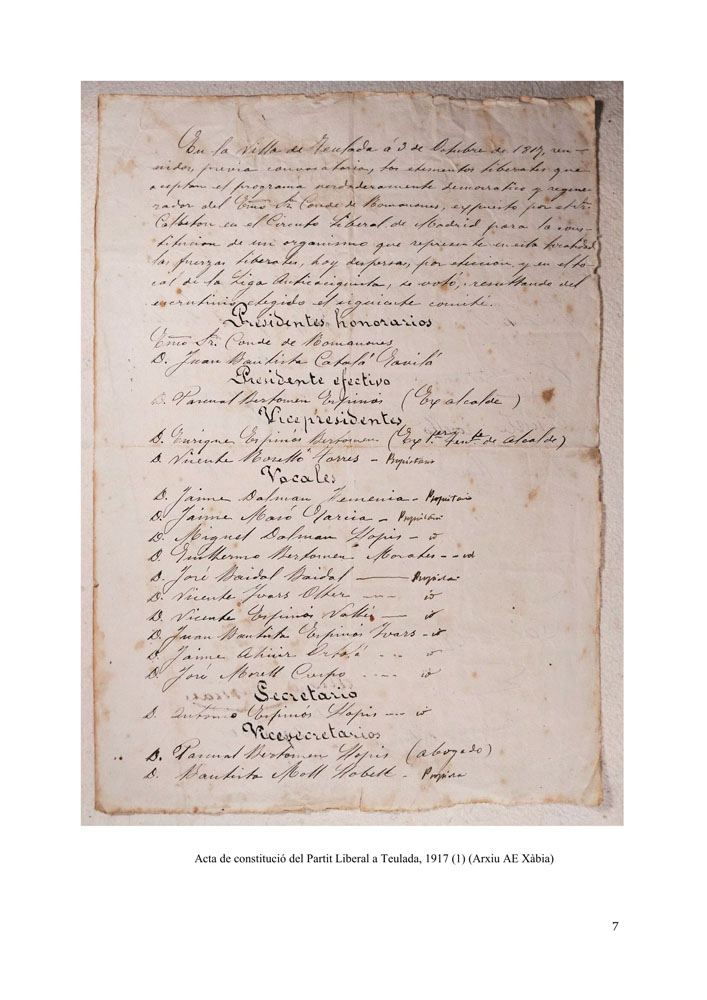 En la Villa de Teulada á 3 de Octubre de 1917, reu-
nidos, previa convocatoria, los elementos liberales que
aceptan el programa verdaderamente democratico y regene-
rador del Exmo Sr. Conde de Romanones, expuesto por el Sr.
Calbeton en el Circulo Liberal de Madrid para la cons-
titucion de un organismo que represente en esta localidad
las fuerzas liberales, hoy dispersas, por eleccion, y en el lo-
cal de la Liga Anticaciquista, se votó, resultando del
escrutinio elegido el siguiente comité.
Presidentes honorarios
Exmo Sr. Conde de Romanones
D. Juan Bautista Catalá Gavilá
Presidente efectivo
D. Pascual Bertomeu Espinós (Ex alcalde)
Vicepresidentes
D. Enrique Espinós Bertomeu (Ex 1er Tente de alcalde)
D. Vicente Morelló Torres - Propietario
Vocales
D. Jaime Dalmau Femenia - Propietario
D. Jaime Masó Garcia - Propietario
D. Miguel Dalmau Llopis - id
D. Guillermo Bertomeu Morales - - id
D. José Baidal Baidal — Propieta
D. Vicente Ivars Oller - - - id
D. Vicente Espinós Vallés — id
D. Juan Bautista Espinós Ivars - id
D. Jaime Ortolá - - - id
D. José Morell Crespo - - - - id
Secretario
D. Antonio Espinós Llopis - - - id
Vicesecretarios
D. Pascual Bertomeu Llopis (abogado)
D. Bautista Moll Llobell -
Acta de constitució del Partit Liberal a Teulada, 1917 (1) (Arxiu AE Xàbia)
7